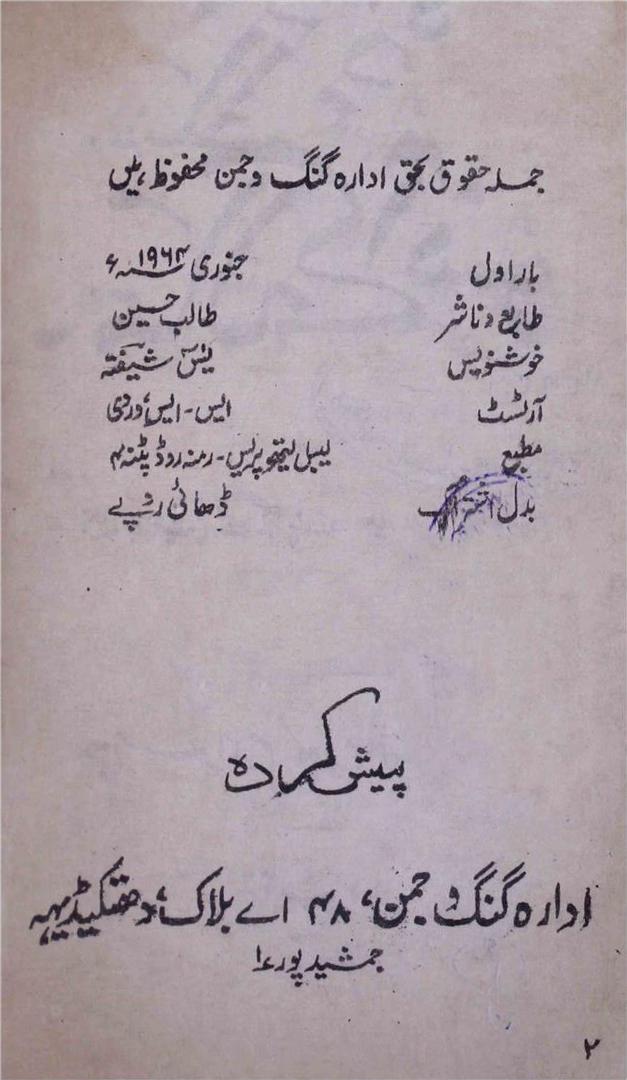 جملہ حقوق بحق ادارہ گنگ و جمن محفوظ ہیں
بار اول جنوری ۱۹۶۴ سنہ ء
طابع و ناشر طالب حسین
خوشنویس یٰسٓ شیفتہ
آرٹسٹ ایس۔ایس، وردی
مطبع لیبل لیتھو پریس۔ رمنہ روڈ پٹنہ ۴
بدل اشتراک ڈھائی روپے
پیش کردہ
ادارہ گنگ و جمن، ۴۸ اے بلاک، دھتکیڈیہہ
جمشید پور ۱
۲